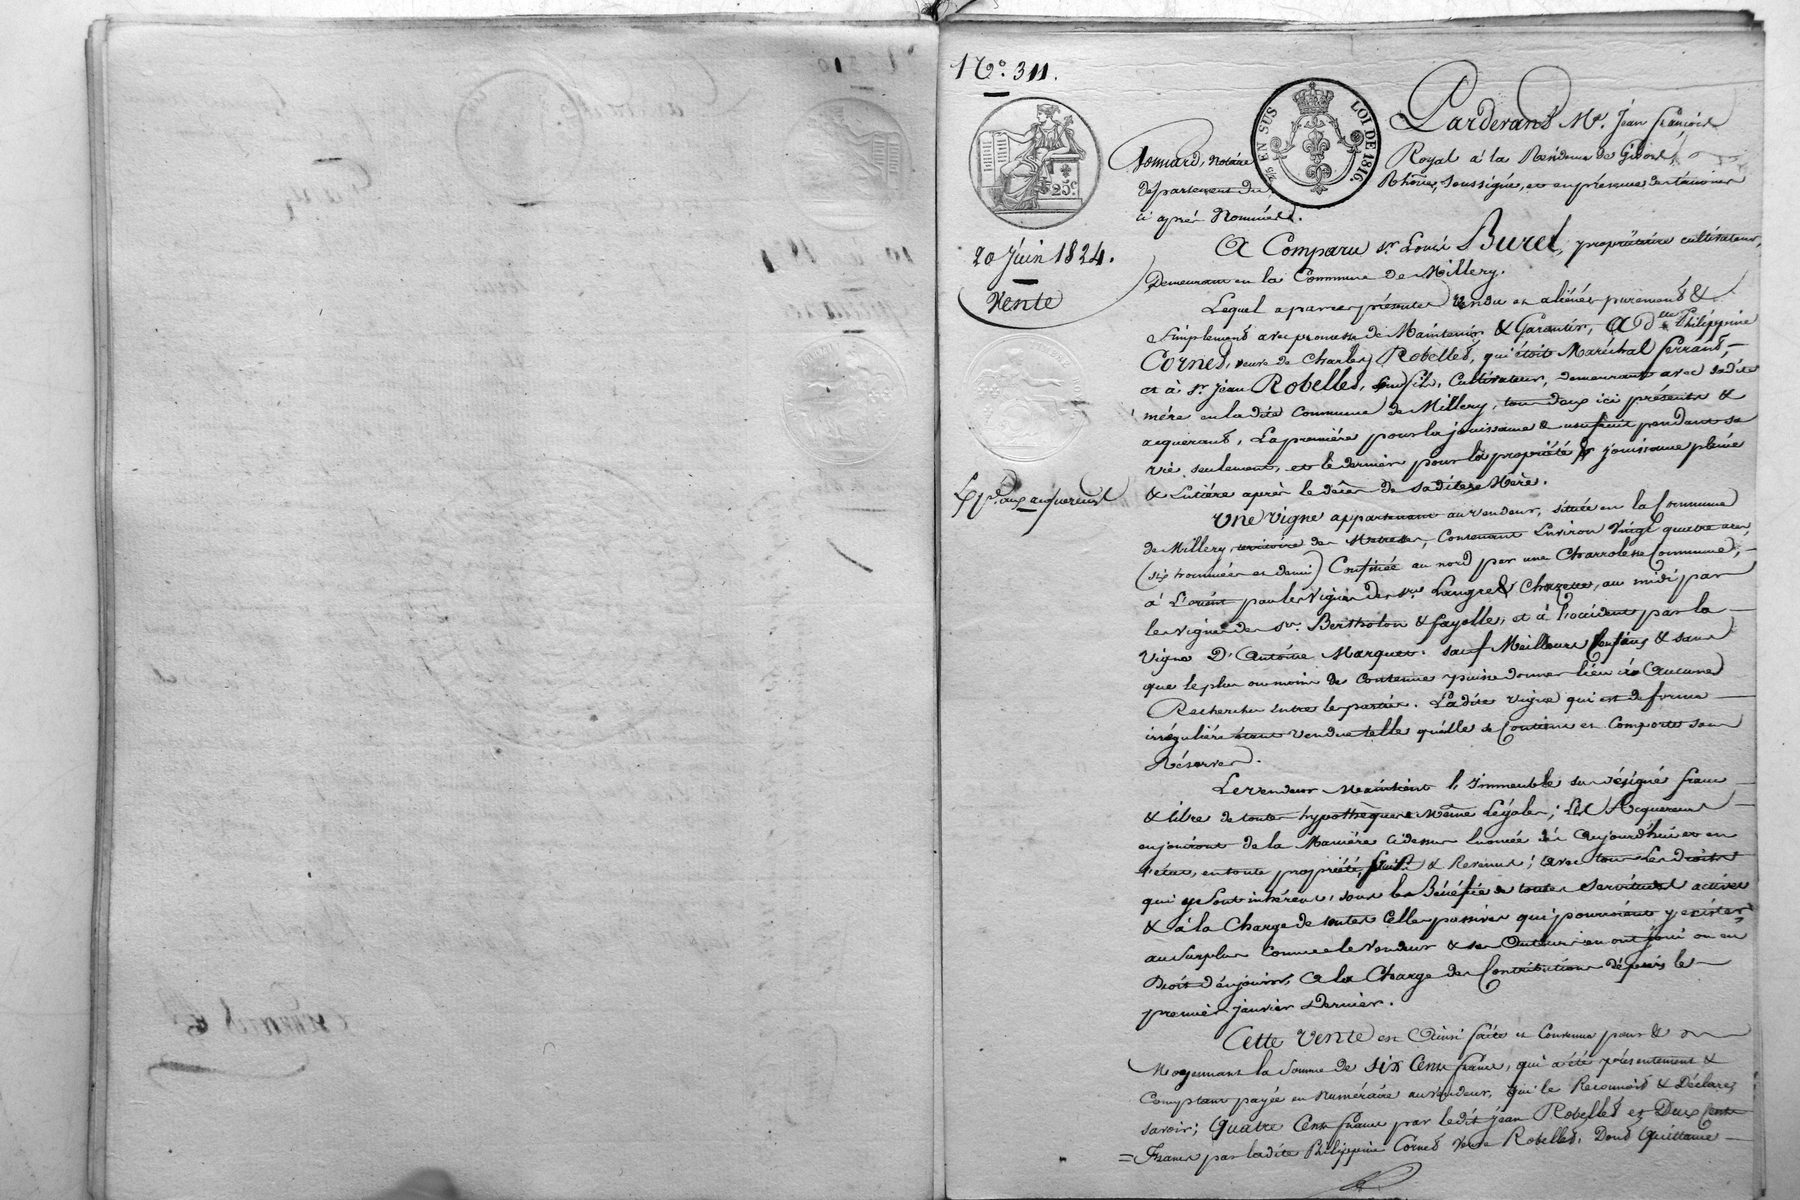 N.o 311.
25 c
20 juin 1824.
Vente
Exp.é aux acquereurs
¼ EN SUS LOI DE 1816.
Pardevant M.e Jean François
notaire Royal à la Residence de Givors,
département du Rhône, soussigné, et en présence des témoins
ci après Nommés.
A Comparu s.r Louis Buret, propriétaire cultivateur,
Demeurant en la Commune de Millery.
Lequel a par ces présentes vendu et aliéné purement &
simplement avec promesse de Maintenir & Garantir, A d.lle Philippine
Cornet, veuve de Charles Robellet, qui étoit Maréchal ferrant,
et à s.r Jean Robellet, son fils, Cultivateur, demeurant avec sadite
mére en ladite Commune de Millery, tous deux ici présents &
acquerant, La premiére pour la jouissance & usufruit pendant sa
vie seulement, et le dernier pour la propriété & jouissance pleine
& Entiére après le décès de sadite Mére.
Une vigne appartenant au vendeur, située en la Commune
de Millery, territoire des, Contenant Environ Vingt quatre ares,
(six hommées et demi) Confinée au nord par une Charrolesse Commune,
à L'orient par les Vignes des s.rs Langret & Chazette, au midi par
les vignes des s.rs Bertholon & fayolle, et à l'occident par la
vigne D'Antoine Marquet. sauf Meilleurs Confins & sans
que le plus ou moins de Contenue puisse donner lieu à Aucune
Recherche Entre les parties. Ladite vigne qui est de forme
irréguliére étant vendue telle qu'elle se Contient et Comporte sans
Réserve.
Le vendeur Maintient l'immeuble sus désigné franc
& libre de toutes hypothèques Même Légales; Les Acquereurs
en jouiront de la Maniére ci dessus Enoncée dès Aujourd'hui et en
l'état, en toute propriété, fruits & Revenus; avec tous les Droits
qui y sont inhérents, sous le Bénéfice de toutes servitudes actives
& à la Charge de toutes Celles passives qui pourroient y exister,
au surplus Comme le Vendeur & ses Auteurs en ont joui ou eu
Droit d'en jouir, A la Charge des Contributions depuis le
premier janvier Dernier.
Cette vente est Ainsi faite et Convenue pour &
Moyennant la somme de six Cents francs, qui a été présentement &
Comptant payée en numéraire au vendeur, qui le Reconnoit & Déclare,
savoir; Quatre Cents francs par ledit jean Robellet et Deux Cents
Francs par ladite Philippine Cornet Veuve Robellet. Dont Quittance